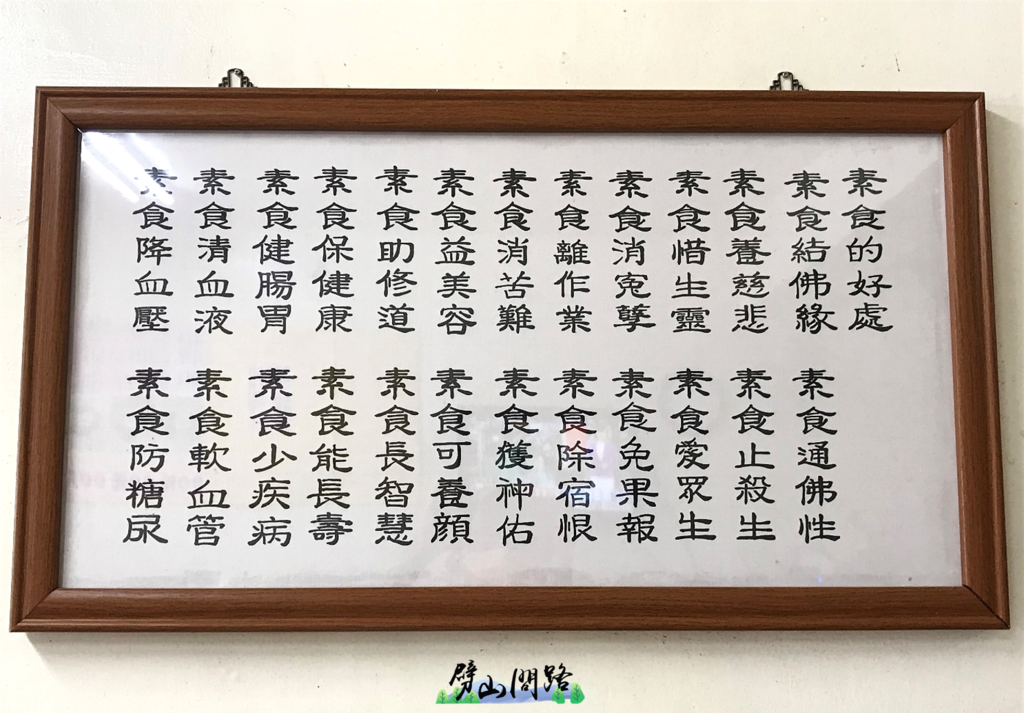 素食的好處
素食結佛緣 素食通佛性
素食養慈悲 素食止殺生
素食惜生靈 素食愛眾生
素食消冤孽 素食免果報
素食離作業 素食除宿恨
素食消苦難 素食獲神佑
素食益美容 素食可養顏
素食助修道 素食長智慧
素食保健康 素食能長壽
素食健腸胃 素食少疾病
素食清血液 素食軟血管
素食降血壓 素食防糖尿
劈山問路